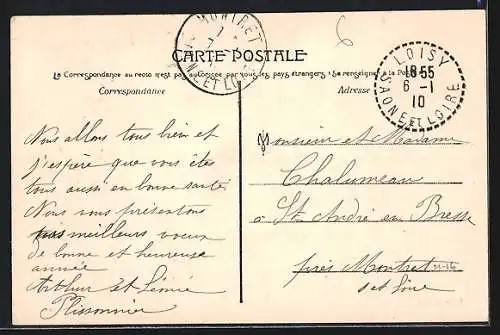 MONTRET
CARTE POSTALE
La Correspondance au recto n'est pas autorisée par tous les pays étrangers (Se renseigner à la Poste)
Correspondance
Adresse
LOISY
18 55
6 -1
10
SAONE ET LOIRE
Nous allons tous bien et
j'espère que vous êtes
tous aussi en bonne santé
Nous vous présentons
nos meilleurs voeux
de bonne et heureuse
année
Arthur et Léonie
Plissonnier
Monsieur et Madame
Chalumeau
à St André en Bresse
près Montret